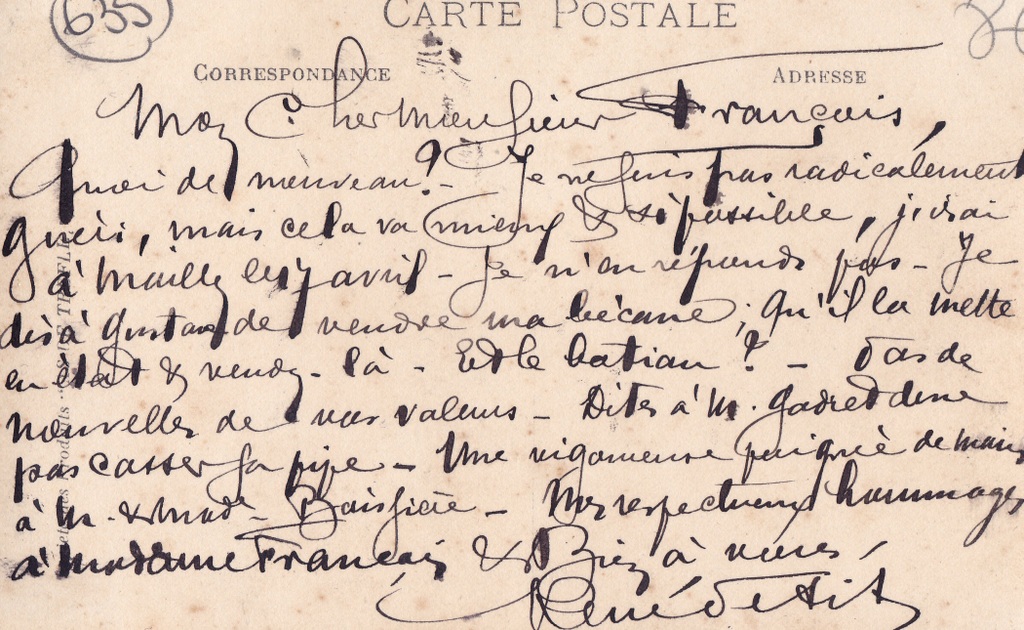 635
CARTE POSTALE
CORRESPONDANCE ADRESSE
Mon Cher Monsieur François,
Quoi de nouveau? - Je ne suis pas radicalement
guéri, mais cela va mieux & si possible, j'irai
à Mailly les 7 avril - Je n'en réponds pas - Je
dis à Gustave de vendre ma bécane; qu'il la mette
en état & vendez-là - Et le bateau? - Pas de
nouvelles de vos valeurs - Dites à M. de ne
pas casser sa pipe - Une vigoureuse poignée de main
à M. & Mad. - Mes respectueux hommages
à Madame François & Bien à vous,
René Petit